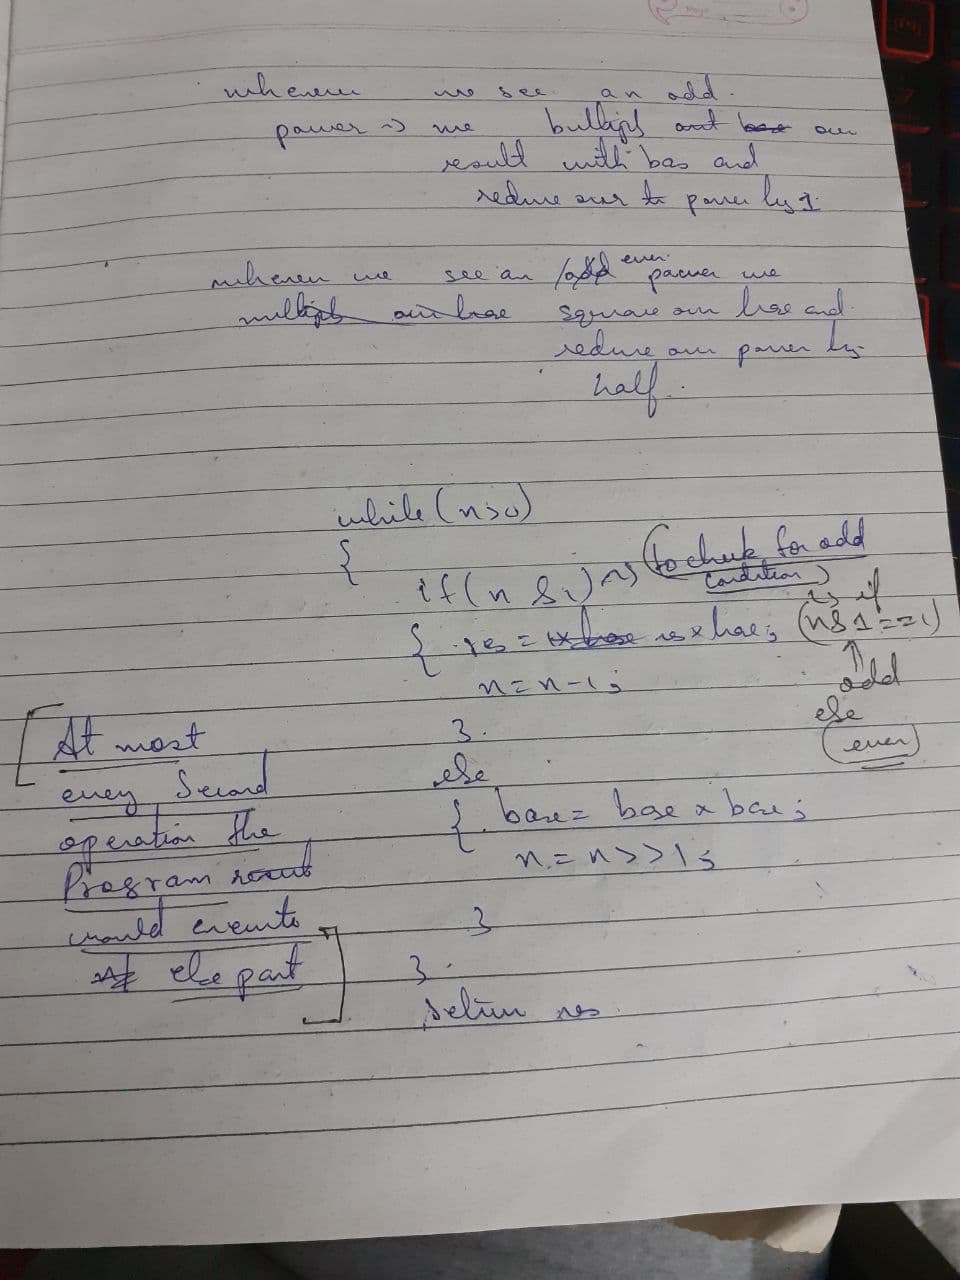 whenever we see an odd
power → we bultiply out base our
result with bas and
reduce our to power by 1.
whenever we see an odd even power we
multiply our base square our base and
reduce our power by
half.
while (n>0)
{
if (n & 1) → (to check for odd
condition)
{ res = res x base; is if (n&1==1)
n = n-1; odd
} else
(even)
else
{ base = base x base;
n = n>>1;
}
}
return res
[At most
every Second
operation the
Program
would execute
else part]